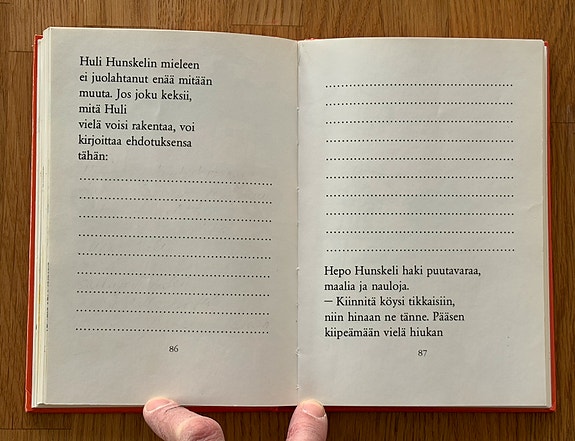 Huli Hunskelin mieleen
ei juolahtanut enää mitään
muuta. Jos joku keksii,
mitä Huli
vielä voisi rakentaa, voi
kirjoittaa ehdotuksensa
tähän:
86
Hepo Hunskeli haki puutavaraa,
maalia ja nauloja.
— Kiinnitä köysi tikkaisiin,
niin hinaan ne tänne. Pääsen
kiipeämään vielä hiukan
87